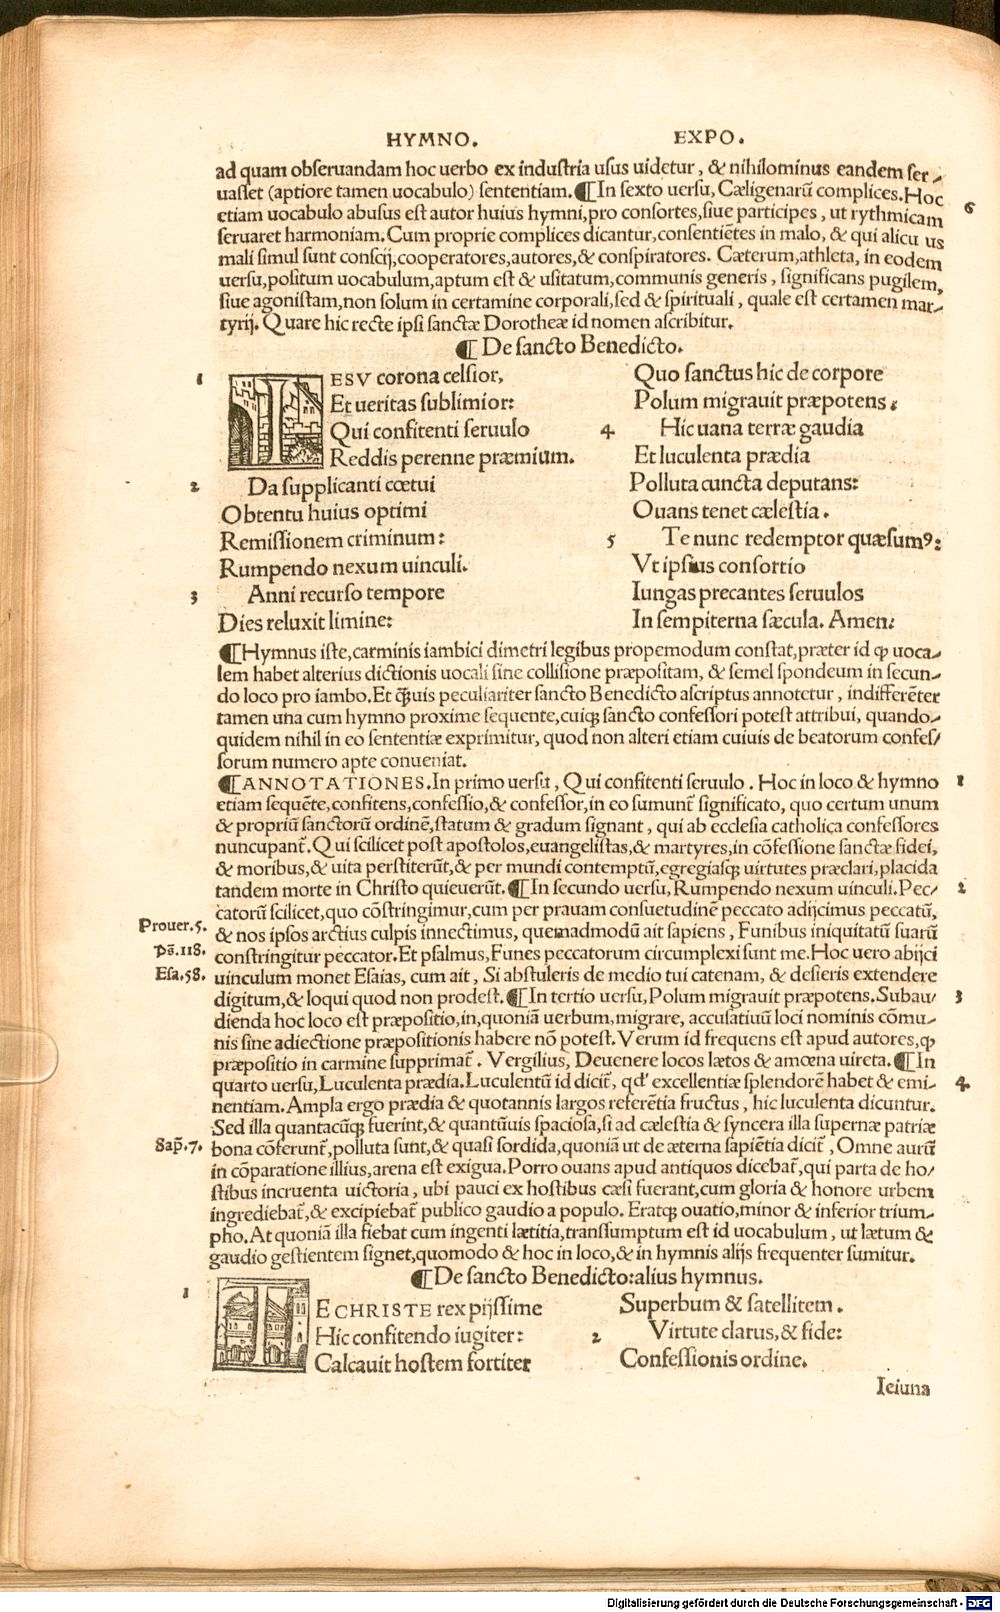 HYMNO. EXPO.
ad quam obseruandam hoc uerbo ex industria usus uidetur, & nihilominus eandem ser-
uasset (aptiore tamen uocabulo) sententiam. ¶In sexto uersu, Cæligenarū complices. Hoc
6
etiam uocabulo abusus est autor huius hymni, pro consortes, siue participes, ut rythmicam
seruaret harmoniam. Cum proprie complices dicantur, consentiētes in malo, & qui alicu us
mali simul sunt conscij, cooperatores, autores, & conspiratores. Cæterum, athleta, in eodem
uersu, positum uocabulum, aptum est & usitatum, communis generis, significans pugilem,
siue agonistam, non solum in certamine corporali, sed & spirituali, quale est certamen mar-
tyrij. Quare hic recte ipsi sanctæ Dorotheæ id nomen ascribitur.
¶ De sancto Benedicto.
1 IESV corona celsior,
Et ueritas sublimior:
Qui confitenti seruulo
Reddis perenne præmium.
2 Da supplicanti cœtui
Obtentu huius optimi
Remissionem criminum:
Rumpendo nexum uinculi.
3 Anni recurso tempore
Dies reluxit limine:
Quo sanctus hic de corpore
Polum migrauit præpotens.
4 Hic uana terræ gaudia
Et luculenta prædia
Polluta cuncta deputans:
Ouans tenet cælestia.
5 Te nunc redemptor quæsumꝰ:
Vt ipsius consortio
Iungas precantes seruulos
In sempiterna sæcula. Amen.
¶Hymnus iste, carminis iambici dimetri legibus propemodum constat, præter id ꝙ uoca-
lem habet alterius dictionis uocali sine collisione præpositam, & semel spondeum in secun-
do loco pro iambo. Et q̃uis peculiariter sancto Benedicto ascriptus annotetur, indifferēter
tamen una cum hymno proxime sequente, cuiqꝫ sancto confessori potest attribui, quando-
quidem nihil in eo sententiæ exprimitur, quod non alteri etiam cuiuis de beatorum confes/
sorum numero apte conueniat.
¶ANNOTATIONES. In primo uersu, Qui confitenti seruulo. Hoc in loco & hymno
1
etiam sequēte, confitens, confessio, & confessor, in eo sumunt᷑ significato, quo certum unum
& propriū sanctorū ordinē, statum & gradum signant, qui ab ecclesia catholica confessores
nuncupant᷑. Qui scilicet post apostolos, euangelistas, & martyres, in cōfessione sanctæ fidei,
& moribus, & uita perstiterūt, & per mundi contemptū, egregiasqꝫ uirtutes præclari, placida
tandem morte in Christo quieuerūt. ¶In secundo uersu, Rumpendo nexum uinculi. Pec/
2
catorū scilicet, quo cōstringimur, cum per prauam consuetudinē peccato adijcimus peccatū,
Prouer. 5.
& nos ipsos arctius culpis innectimus, quemadmodū ait sapiens, Funibus iniquitatū suarū
Ps̄. 118.
constringitur peccator. Et psalmus, Funes peccatorum circumplexi sunt me. Hoc uero abijci
Esa. 58.
uinculum monet Esaias, cum ait, Si abstuleris de medio tui catenam, & desieris extendere
digitum, & loqui quod non prodest. ¶In tertio uersu, Polum migrauit præpotens. Subau/
3
dienda hoc loco est præpositio, in, quoniā uerbum, migrare, accusatiuū loci nominis cōmu-
nis sine adiectione præpositionis habere nō potest. Verum id frequens est apud autores, ꝙ
præpositio in carmine supprimat᷑. Vergilius, Deuenere locos lætos & amœna uireta. ¶In
quarto uersu, Luculenta prædia. Luculentū id dicit᷑, qd' excellentiæ splendorē habet & emi-
4
nentiam. Ampla ergo prædia & quotannis largos referētia fructus, hic luculenta dicuntur.
Sed illa quantacūqꝫ fuerint, & quantūuis spaciosa, si ad cælestia & syncera illa supernæ patriæ
Sap̄. 7.
bona cōferunt᷑, polluta sunt, & quasi sordida, quoniā ut de æterna sapiētia dicit᷑, Omne aurū
in cōparatione illius, arena est exigua. Porro ouans apud antiquos dicebat᷑, qui parta de ho/
stibus incruenta uictoria, ubi pauci ex hostibus cæsi fuerant, cum gloria & honore urbem
ingrediebat᷑, & excipiebat᷑ publico gaudio a populo. Eratqꝫ ouatio, minor & inferior trium-
pho. At quoniā illa fiebat cum ingenti lætitia, transsumptum est id uocabulum, ut lætum &
gaudio gestientem signet, quomodo & hoc in loco, & in hymnis alijs frequenter sumitur.
¶ De sancto Benedicto: alius hymnus.
1 E CHRISTE rex pijssime
Hic confitendo iugiter:
Calcauit hostem fortiter
Superbum & satellitem.
2 Virtute clarus, & fide:
Confessionis ordine.
Ieiuna
Digitalisierung gefördert durch die Deutsche Forschungsgemeinschaft - DFG